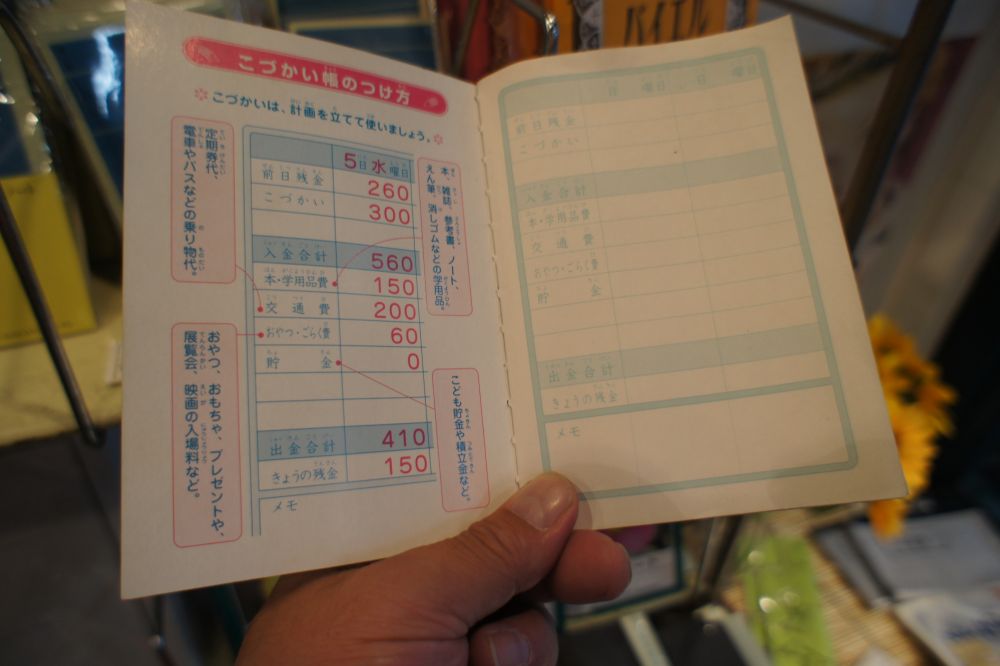 バイエル
こづかい帳のつけ方
こづかいは、計画を立てて使いましょう。
定期券代、
電車やバスなどの乗り物代。
おやつ、おもちゃ、プレゼントや、
展覧会、映画の入場料など。
5日水曜日
前日残金 260
こづかい 300
入金合計 560
本・学用品費 150
交通費 200
おやつ・ごらく費 60
貯金 0
出金合計 410
きょうの残金 150
メモ
本、雑誌、参考書、ノート、
えん筆、消しゴムなどの学用品。
こども貯金や積立金など。
日 曜日 日 曜日
前日残金
こづかい
入金合計
本・学用品費
交通費
おやつ・ごらく費
貯金
出金合計
きょうの残金
メモ